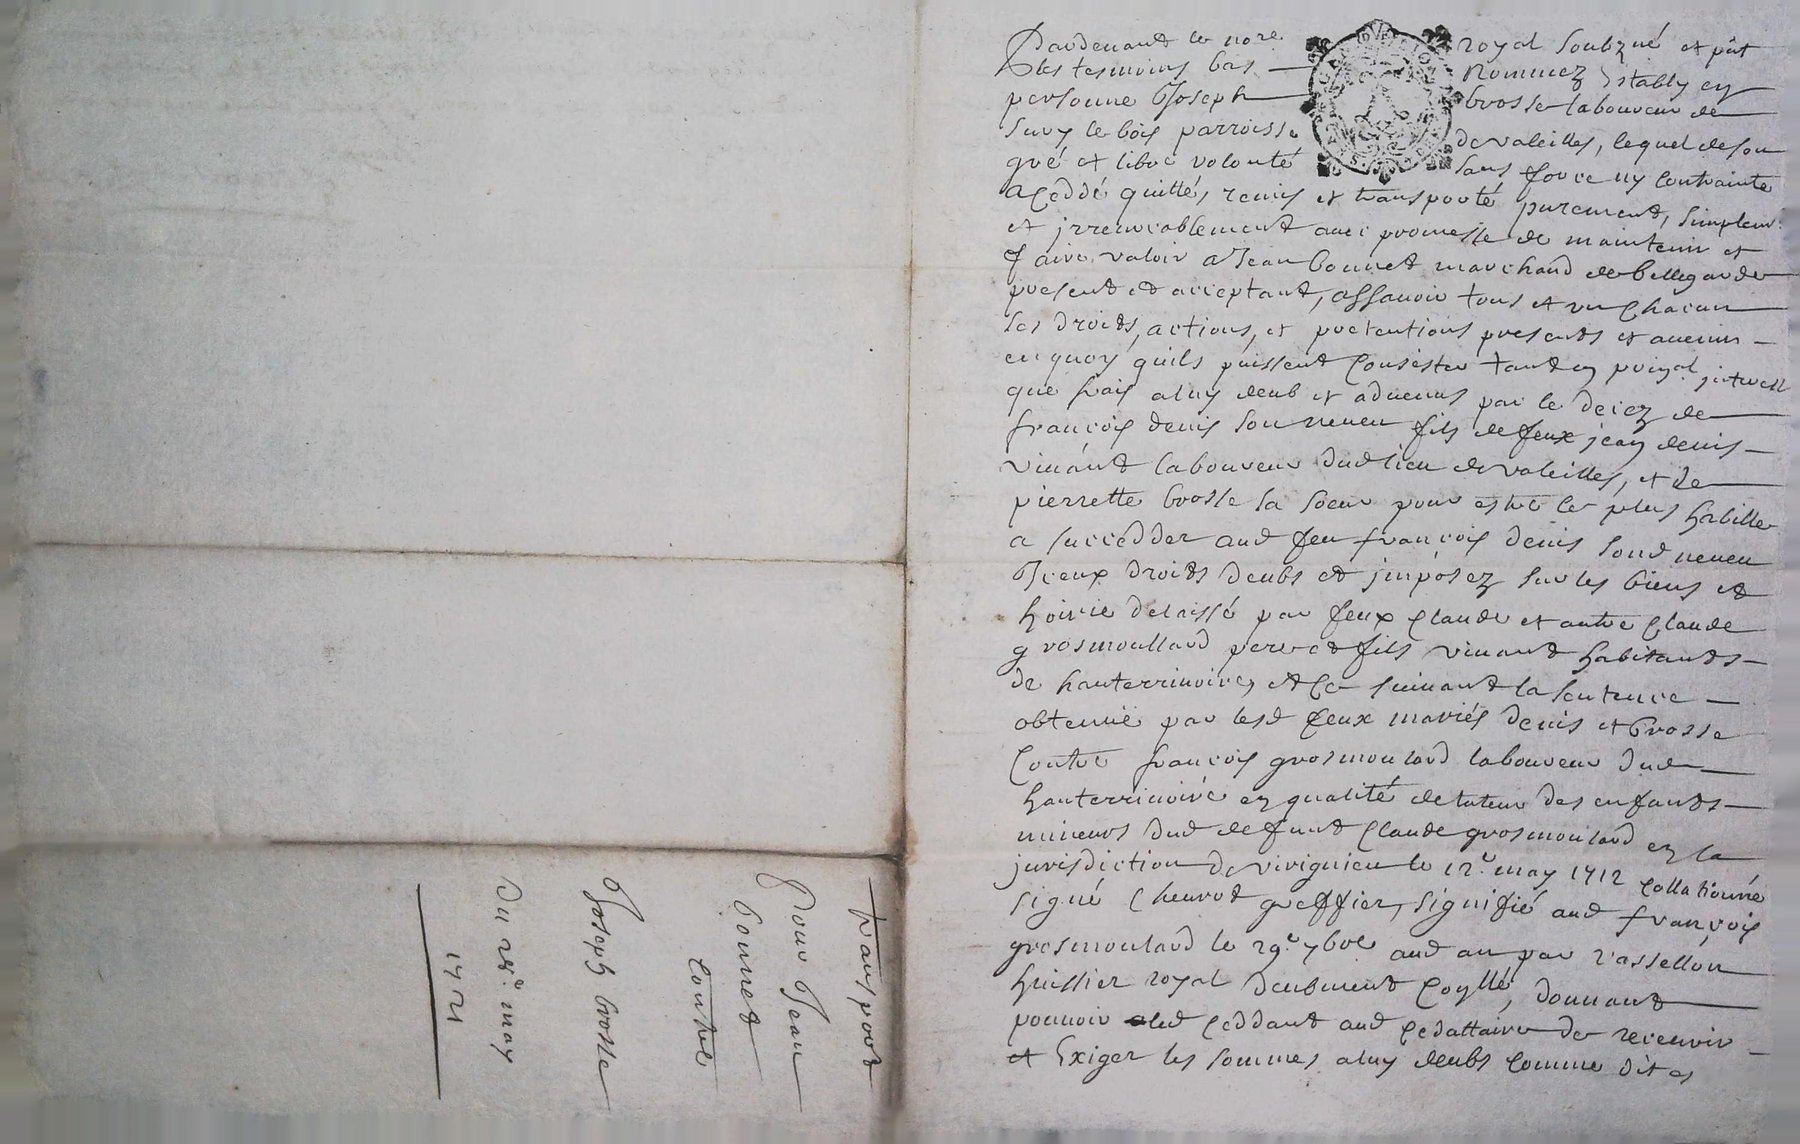 Pardevant le nore royal soubzné et pñt
les tesmoins bas nommez Estably en
personne Joseph brosse laboureur de
Sury le bois parroisse de valeilles, lequel de son
gré et libre volonté sans force ny contrainte
a ceddé quitté, remis et transporté purement, simplemt
et jrrevocablement avec promesse de maintenir et
faire valoir a Jean bonnet marchand de bellegarde
present et acceptant, assavoir tous et un chacun
ses droits, actions, et pretentions presents et avenir
en quoy quils puissent consister tant en prinpal jnterest
que frais a luy deub et advenus par le decez de
françois denis son neveu fils de feux jean denis
vivant laboureur dud lieu de valeilles, et de
pierrette brosse sa soeur pour estre le plus habille
a succedder aud feu françois denis sond neveu
Jceux droits deubs et jmposez sur les biens et
hoirie delaissé par feux Claude et autre Claude
grosmoullard pere et fils vivant habitants
de hauterrivoire, et ce suivant la sentence
obtenue par lesd feux mariés denis et brosse
Contre françois grosmoulard laboureur dud
hauterrivoire en qualité de tuteur des enfants
mineurs dud defunt Claude grosmoulard en la
jurisdiction de virignieu le 12e may 1712 collationné
signé Chevrot greffier, signifié aud françois
grosmoulard le 29e 7bre aud an par rassellon
huissier royal deubment coñllé, donnant
pouvoir led ceddant aud cedattaire de recevoir
et Exiger les sommes a luy deubs comme dit es
transport
Pour Jean
bonnet
Contre
Joseph brosse
Du may
1721